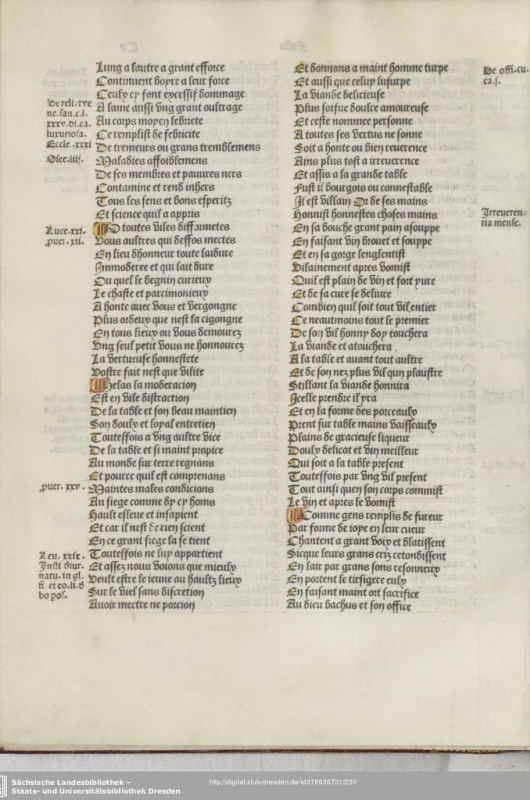 Lung a lautre a grant efforce
Continuent boyre a leur force
Ceulx cy sont excessif dommage
A lame aussi vng grant oultrage
Au corps moyen sebriete
Ce remplist de febricite
De tremeurs ou grans tremblemens
Maladies affoiblemens
De ses membres et pauures ners
Contamine et rend inhers
Tous les sens et bons esperitz
Et science quil a appris
O toutes viles difformetes
Vous aultres qui deffos mectes
En lieu dhonneur toute laidure
Immoderee et qui lait dure
Ou quel le begnin curieux
Le chaste et parcimonieux
A honte auec vous et vergongne
Plus ordeux que nest la cigongne
En tous lieux ou vous demourez
Vng seul petit vous ne honnourez
La vertueuse honnestete
Vostre fait nest que vilite
Helas la moderacion
Est en vile distraction
De la table et son beau maintien
Son doulx et loyal entretien
Touteffois a vng aultre vice
De la table et si maint propice
Au monde sur terre regnans
Et pource quil est comprenans
Maintes males condicions
Au siege comme dy cy homs
Hault esleue et insapient
Et car il nest de rien scient
En ce grant siege la se tient
Touteffois ne luy appartient
Et assez nous voions que mieulx
Veult estre le ieune au haultz lieux
Sur le viel sans discretion
Auoir mectre ne porcion
De reli. eve
ne. san. c. i.
xxxv. di. ca.
luxuriosa.
Eccle. xxxi
Osee. iiij.
Luce. xxi.
puer. xii.
puer. xxv.
Leu. xxix.
Insti diur-
natu. in gl.
fi et eo. li. d
bo pos.
Et donnons a maint homme turpe
Et aussi que celuy lusurpe
La viande delicieuse
Plus soifue doulce amoureuse
Et ceste nommee personne
A toutes ses vertus ne sonne
Soit a honte ou bien reuerence
Ains plus tost a irreuerence
Et assis a la grande table
Fust il bourgois ou connestable
Il est villain Or de ses mains
Honnist honnestes choses mains
En sa bouche grant pain asouppe
En faisant vin brouet et souppe
Et en sa gorge lenglentist
Vilainement apres vomist
Quil est plain de vin et fort pure
Et de sa cure se deliure
Combien quil soit tout vil entier
Ce neautmoins tout le premier
De son vil honny doy touchera
La viande et atouchera
A la table et auant tout aultre
Et de son nez plus vil qun plaustre
Stillant la viande honnira
Icelle prendre il yra
Et en la forme des porceaulx
Prent sur table mains vaisseaulx
Plains de gracieuse liqueur
Doulx delicat et vin meilleur
Qui soit a la table present
Touteffois par vng vil present
Tout ainsi quen son corps commist
Le vin et apres le vomist
Comme gens remplis de fureur
Par forme de ioye en leur cueur
Chantent a grant voix et blatissent
Sicque leurs grans criz retondissent
En lair par grans sons resonneux
En portent le tirsigere eulx
En faisant maint ort sacrifice
Au dieu bachus et son office
De offi. cu.
ca. j.
Irreueren-
tia mense.
Sächsische Landesbibliothek –
Staats- und Universitätsbibliothek Dresden
http://digital.slub-dresden.de/id378636731/230